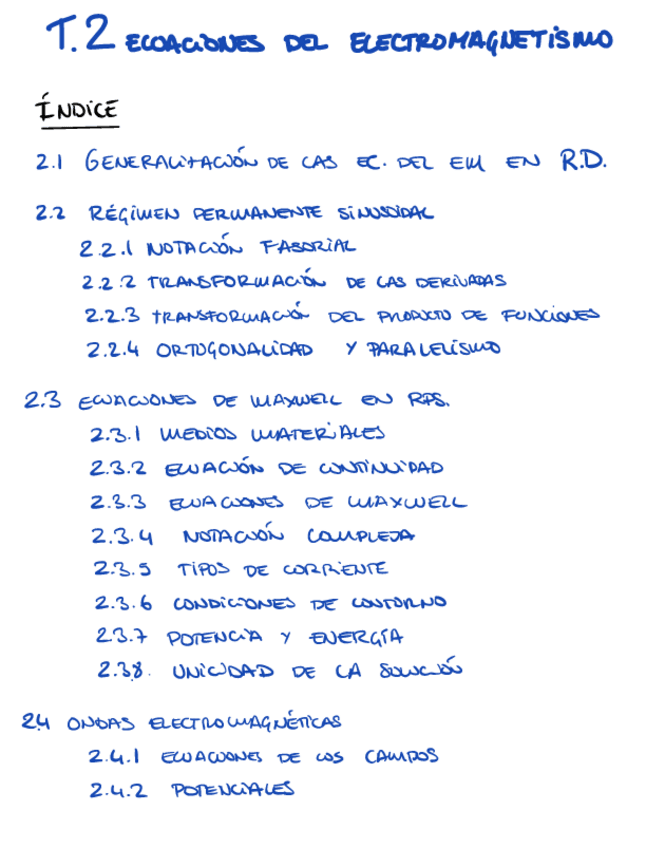 T.2 ECUACIONES DEL ELECTROMAGNETISMO
ÍNDICE
2.1 GENERALIZACIÓN DE LAS EC. DEL EM EN R.D.
2.2 RÉGIMEN PERMANENTE SINUSOIDAL
2.2.1 NOTACIÓN FASORIAL
2.2.2 TRANSFORMACIÓN DE LAS DERIVADAS
2.2.3 TRANSFORMACIÓN DEL PRODUCTO DE FUNCIONES
2.2.4 ORTOGONALIDAD Y PARALELISMO
2.3 ECUACIONES DE MAXWELL EN RPS.
2.3.1 MEDIOS MATERIALES
2.3.2 ECUACIÓN DE CONTINUIDAD
2.3.3 ECUACIONES DE MAXWELL
2.3.4 NOTACIÓN COMPLEJA
2.3.5 TIPOS DE CORRIENTE
2.3.6 CONDICIONES DE CONTORNO
2.3.7 POTENCIA Y ENERGÍA
2.3.8. UNICIDAD DE LA SOLUCIÓN
2.4 ONDAS ELECTROMAGNÉTICAS
2.4.1 ECUACIONES DE LOS CAMPOS
2.4.2 POTENCIALES